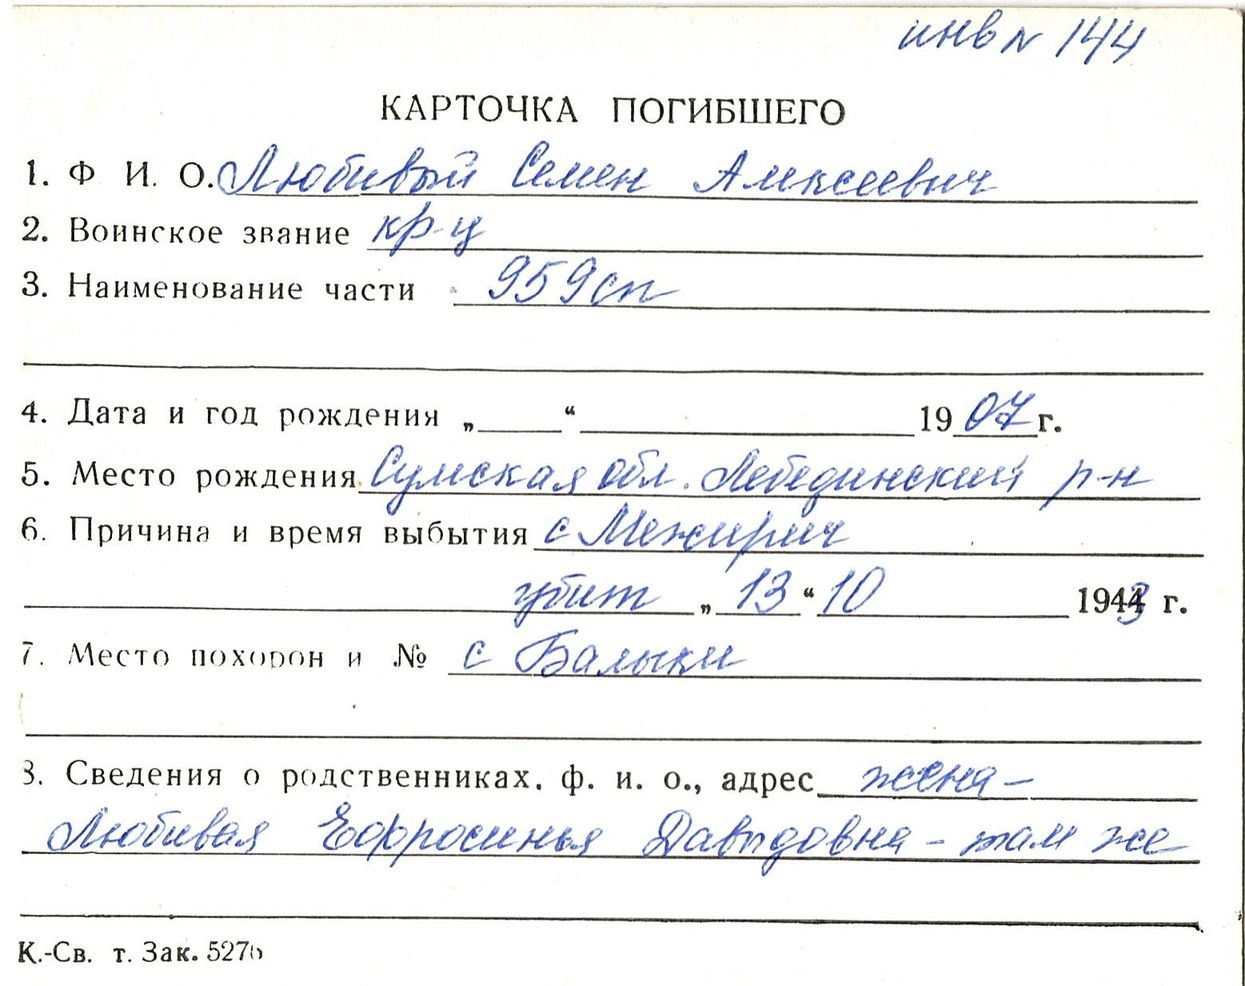 инв № 144
КАРТОЧКА ПОГИБШЕГО
1. Ф И. О. Любивый Семен Алексеевич
2. Воинское звание кр-ц
3. Наименование части 959сп
4. Дата и год рождения „ “ 1907 г.
5. Место рождения Сумская обл. Лебединский р-н
6. Причина и время выбытия с Межирич
убит „13“ 10 1943 г.
7. Место похорон и № с Балыки
8. Сведения о родственниках, ф. и. о., адрес жена –
Любивая Ефросинья Давыдовна – там же
К.-Св. т. Зак. 5276